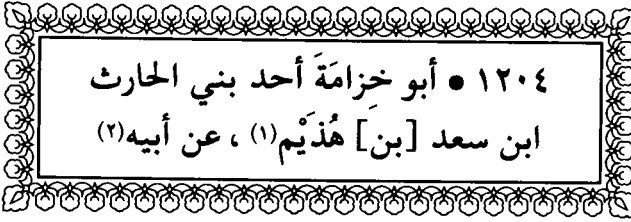 ١٢٠٤ • أبو خِزامَةَ أحد بني الحارث
ابن سعد [بن] هُذَيْم(١) ، عن أبيه(٢)